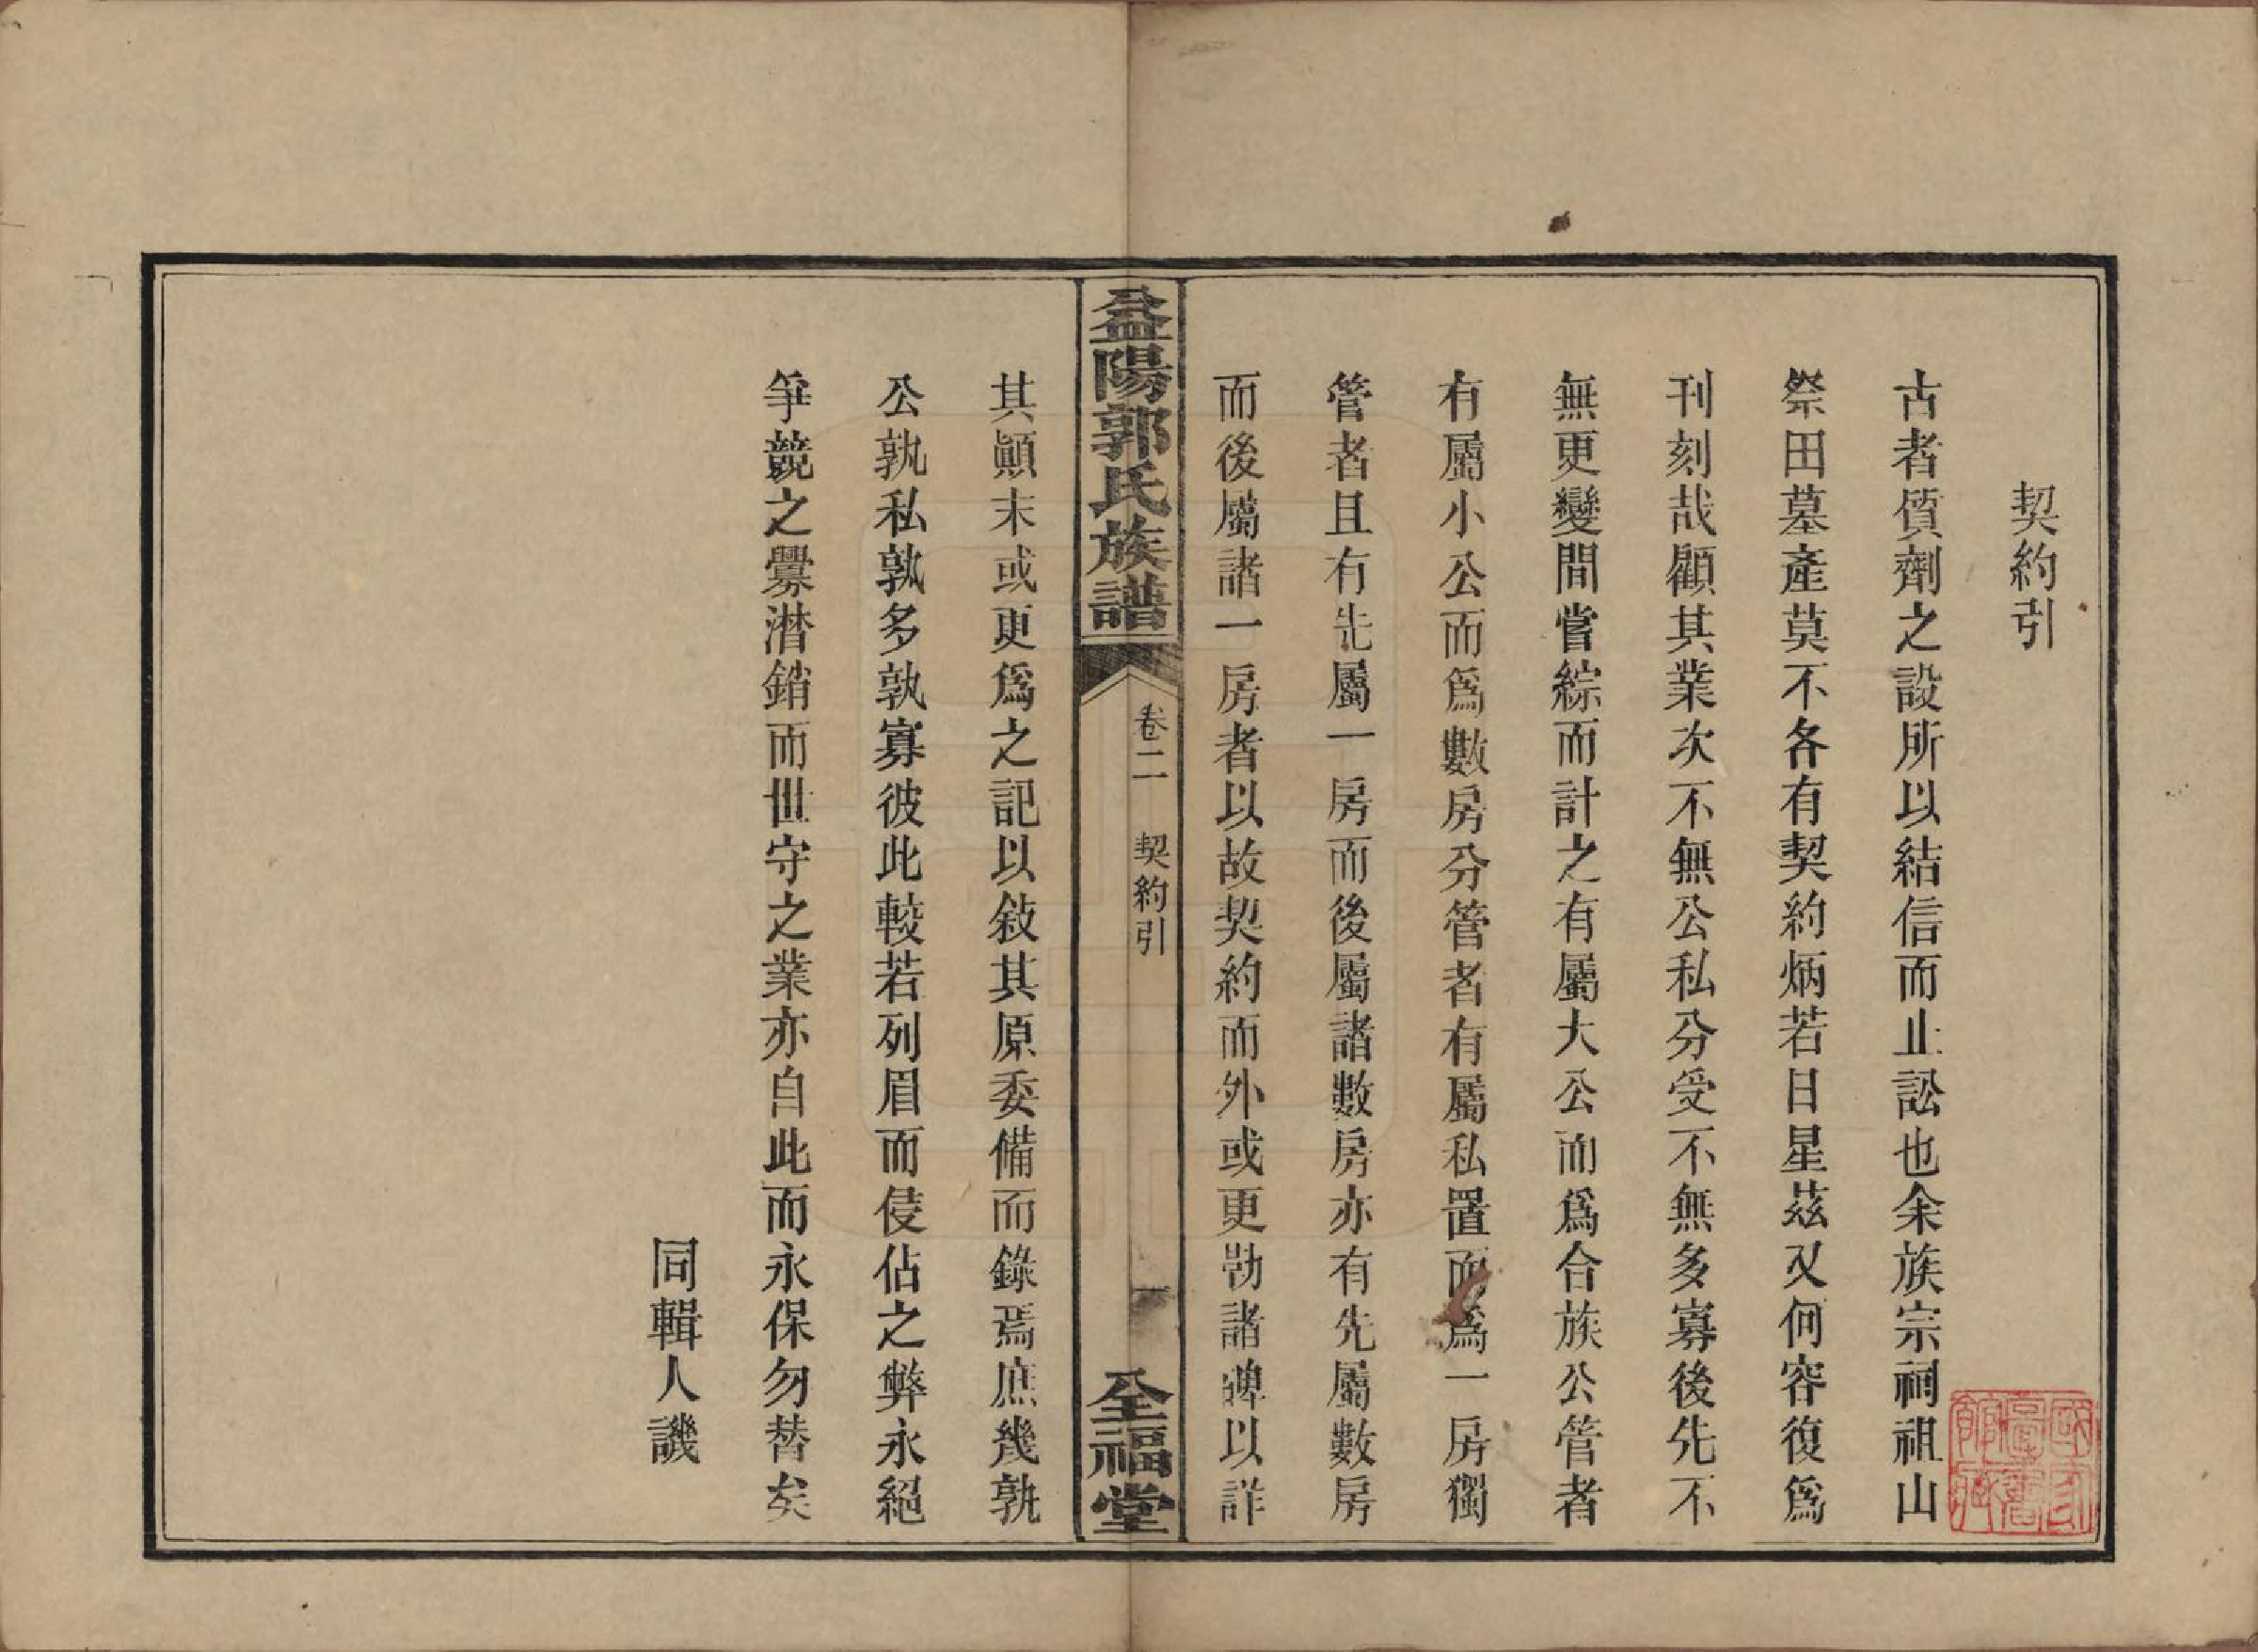 契約引
古者質劑之設所以結信而止訟也余族宗祠祖山
祭田墓產莫不各有契約炳若日星茲又何容復爲
刊刻哉顧其業次不無公私分受不無多寡後先不
無更變間嘗綜而計之有屬大公而爲合族公管者
有屬小公而爲數房分管者有屬私置而爲一房獨
管者且有先屬一房而後屬諸數房亦有先屬數房
而後屬諸一房者以故契約而外或更勒諸碑以詳
益陽郭氏族譜
卷二
契約引
一
全福堂
其顚末或更爲之記以敍其原委備而錄焉庶幾孰
公孰私孰多孰寡彼此較若列眉而侵佔之弊永絕
爭競之釁潛銷而世守之業亦自此而永保勿替矣
同輯人譏
國家圖書館藏